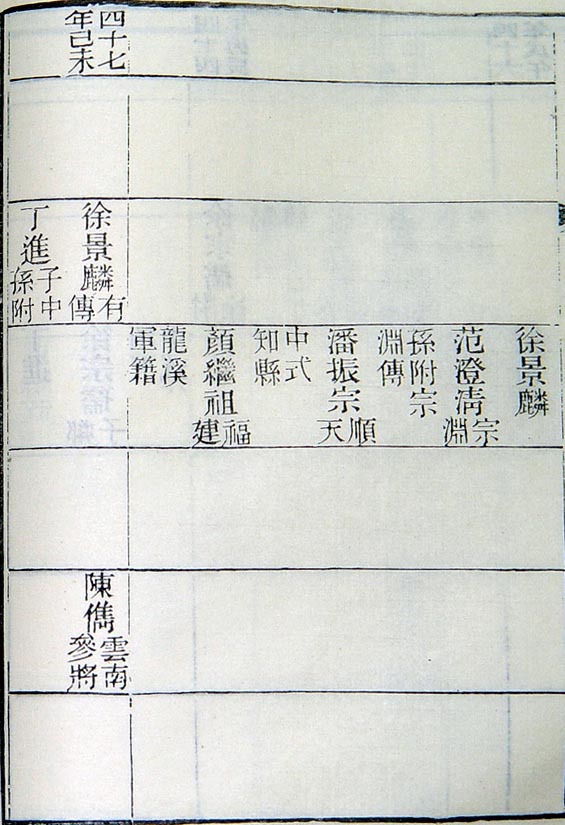 徐景麟
范澄清宗淵
孫附宗
淵傳
潘振宗順天
中式
知縣
顏繼祖福建
龍溪
軍籍
四十七
年己未
徐景麟有傳
丁進子中孫附
陳儁雲南參將